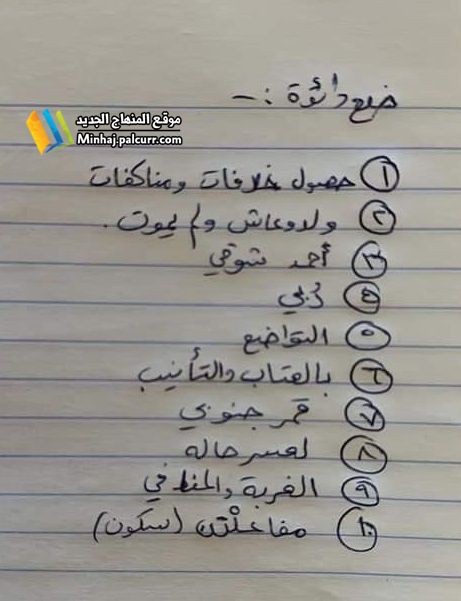 ضع دائرة :-
موقع المنهاج الجديد
Minhaj.palcurr.com
١ حصول خلافات ومناكفات
٢ ولد وعاش ولم يموت.
٣ أحمد شوقي
٤ دُبي
٥ التواضع
٦ بالعتاب والتأنيب
٧ قمر جنوبي
٨ لعسر حاله
٩ الغربة والمنافي
١٠ مفاعلْتن (سكون)